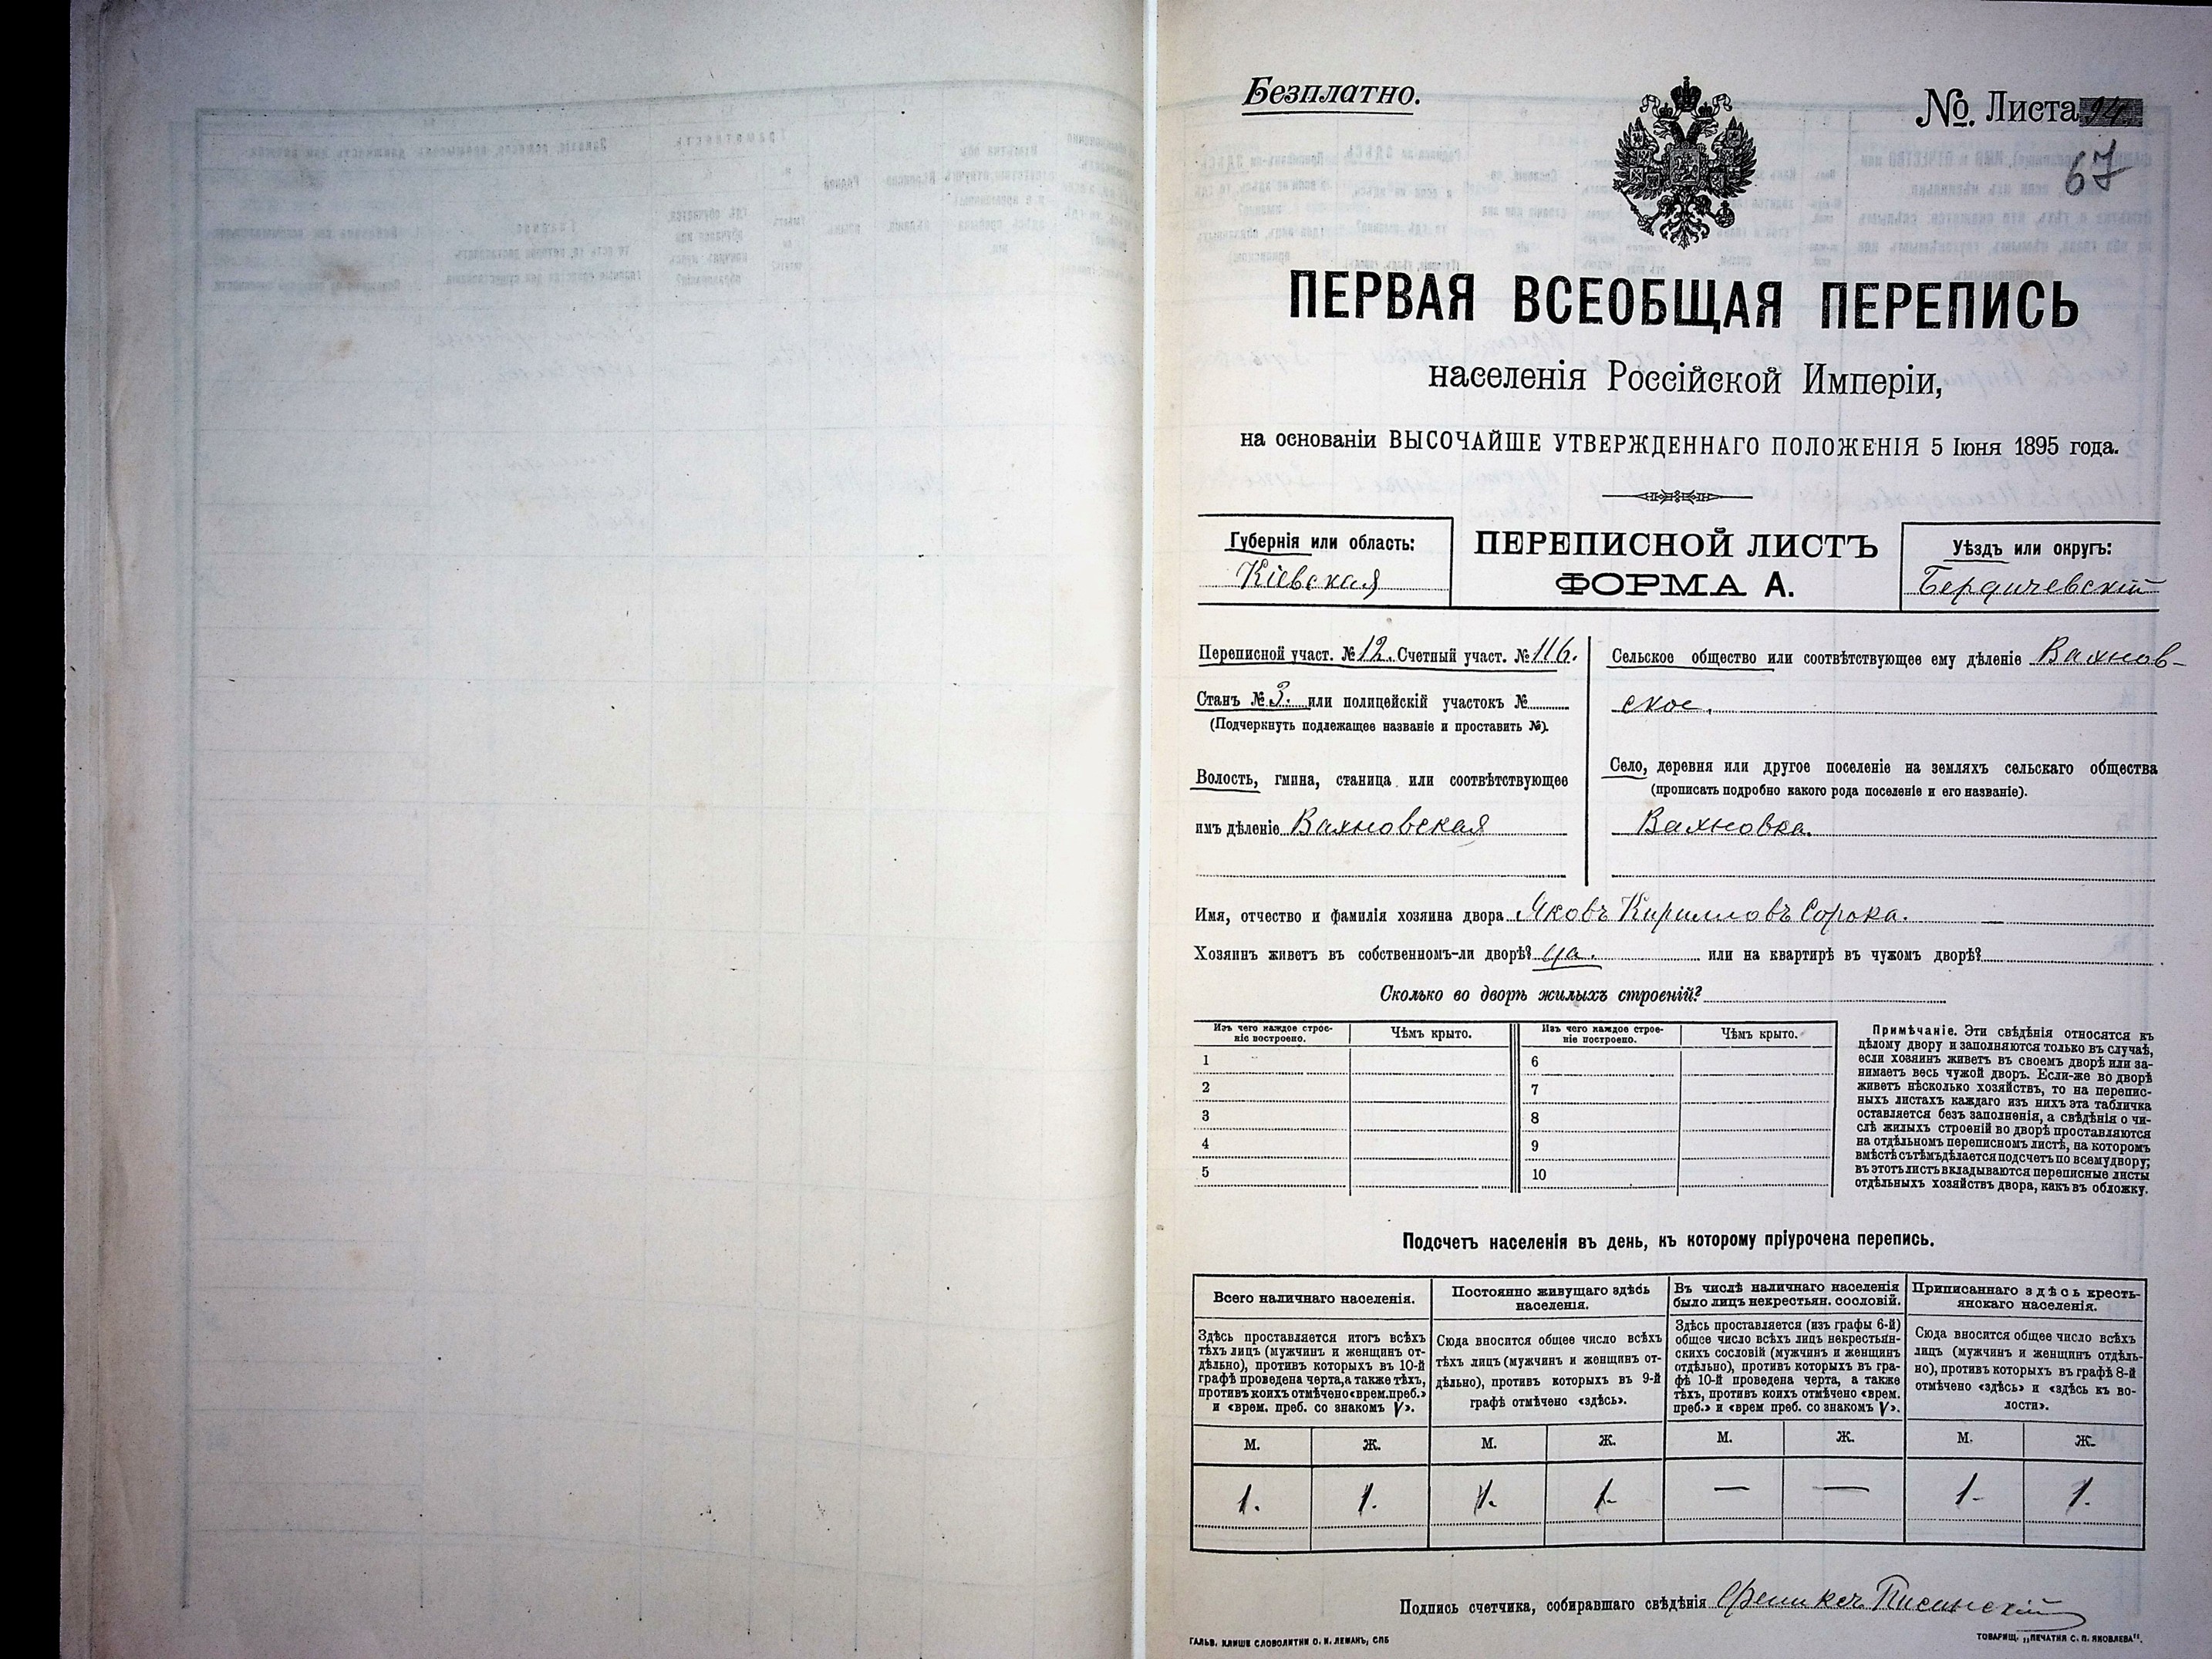 Безплатно.
№ Листа 94
67
ПЕРВАЯ ВСЕОБЩАЯ ПЕРЕПИСЬ
населенія Россійской Имперіи,
на основаніи ВЫСОЧАЙШЕ УТВЕРЖДЕННАГО ПОЛОЖЕНІЯ 5 Іюня 1895 года.
Губернія или область:
Кіевская
ПЕРЕПИСНОЙ ЛИСТЪ
ФОРМА А.
Уѣздъ или округъ:
Бердичевскій
Переписной участ. № 12. Счетный участ. № 116.
Станъ № 3. или полицейскій участокъ №
(Подчеркнуть подлежащее названіе и проставить №).
Волость, гмина, станица или соотвѣтствующее
имъ дѣленіе Вахновская
Сельское общество или соотвѣтствующее ему дѣленіе Вахнов-
ское.
Село, деревня или другое поселеніе на земляхъ сельскаго общества
(прописать подробно какого рода поселеніе и его названіе).
Вахновка.
Имя, отчество и фамилія хозяина двора Яковъ Кирилловъ Сорока.
Хозяинъ живетъ въ собственномъ-ли дворѣ? да. или на квартирѣ въ чужомъ дворѣ?
Сколько во дворѣ жилыхъ строеній?
Изъ чего каждое строе-
ніе построено.
Чѣмъ крыто.
Изъ чего каждое строе-
ніе построено.
Чѣмъ крыто.
1 6
2 7
3 8
4 9
5 10
Примѣчаніе. Эти свѣдѣнія относятся къ
цѣлому двору и заполняются только въ случаѣ,
если хозяинъ живетъ въ своемъ дворѣ или за-
нимаетъ весь чужой дворъ. Если-же во дворѣ
живетъ нѣсколько хозяйствъ, то на перепис-
ныхъ листахъ каждаго изъ нихъ эта табличка
оставляется безъ заполненія, а свѣдѣнія о чи-
слѣ жилыхъ строеній во дворѣ проставляются
на отдѣльномъ переписномъ листѣ, на которомъ
вмѣстѣ съ тѣмъ дѣлается подсчетъ по всему двору;
въ этотъ листъ вкладываются переписные листы
отдѣльныхъ хозяйствъ двора, какъ въ обложку.
Подсчетъ населенія въ день, къ которому пріурочена перепись.
Всего наличнаго населенія.
Здѣсь проставляется итогъ всѣхъ
тѣхъ лицъ (мужчинъ и женщинъ от-
дѣльно), противъ которыхъ въ 10-й
графѣ проведена черта, а также тѣхъ,
противъ коихъ отмѣчено «врем. преб.»
и «врем. преб. со знакомъ V».
Постоянно живущаго здѣсь
населенія.
Сюда вносится общее число всѣхъ
тѣхъ лицъ (мужчинъ и женщинъ от-
дѣльно), противъ которыхъ въ 9-й
графѣ отмѣчено «здѣсь».
Въ числѣ наличнаго населенія
было лицъ некрестьян. сословій.
Здѣсь проставляется (изъ графы 6-й)
общее число всѣхъ лицъ некрестьян-
скихъ сословій (мужчинъ и женщинъ
отдѣльно), противъ которыхъ въ гра-
фѣ 10-й проведена черта, а также
тѣхъ, противъ коихъ отмѣчено «врем.
преб.» и «врем преб. со знакомъ V».
Приписаннаго здѣсь кресть-
янскаго населенія.
Сюда вносится общее число всѣхъ
лицъ (мужчинъ и женщинъ отдѣль-
но), противъ которыхъ въ графѣ 8-й
отмѣчено «здѣсь» и «здѣсь къ во-
лости».
М. Ж. М. Ж. М. Ж. М. Ж.
1. 1. 1. 1. — — 1. 1.
Подпись счетчика, собиравшаго свѣдѣнія Феликсъ Писанскій
ГАЛЬВ. КЛИШЕ СЛОВОЛИТНИ О. И. ЛЕМАНЪ, СПБ
ТОВАРИЩ. „ПЕЧАТНЯ С. П. ЯКОВЛЕВА".